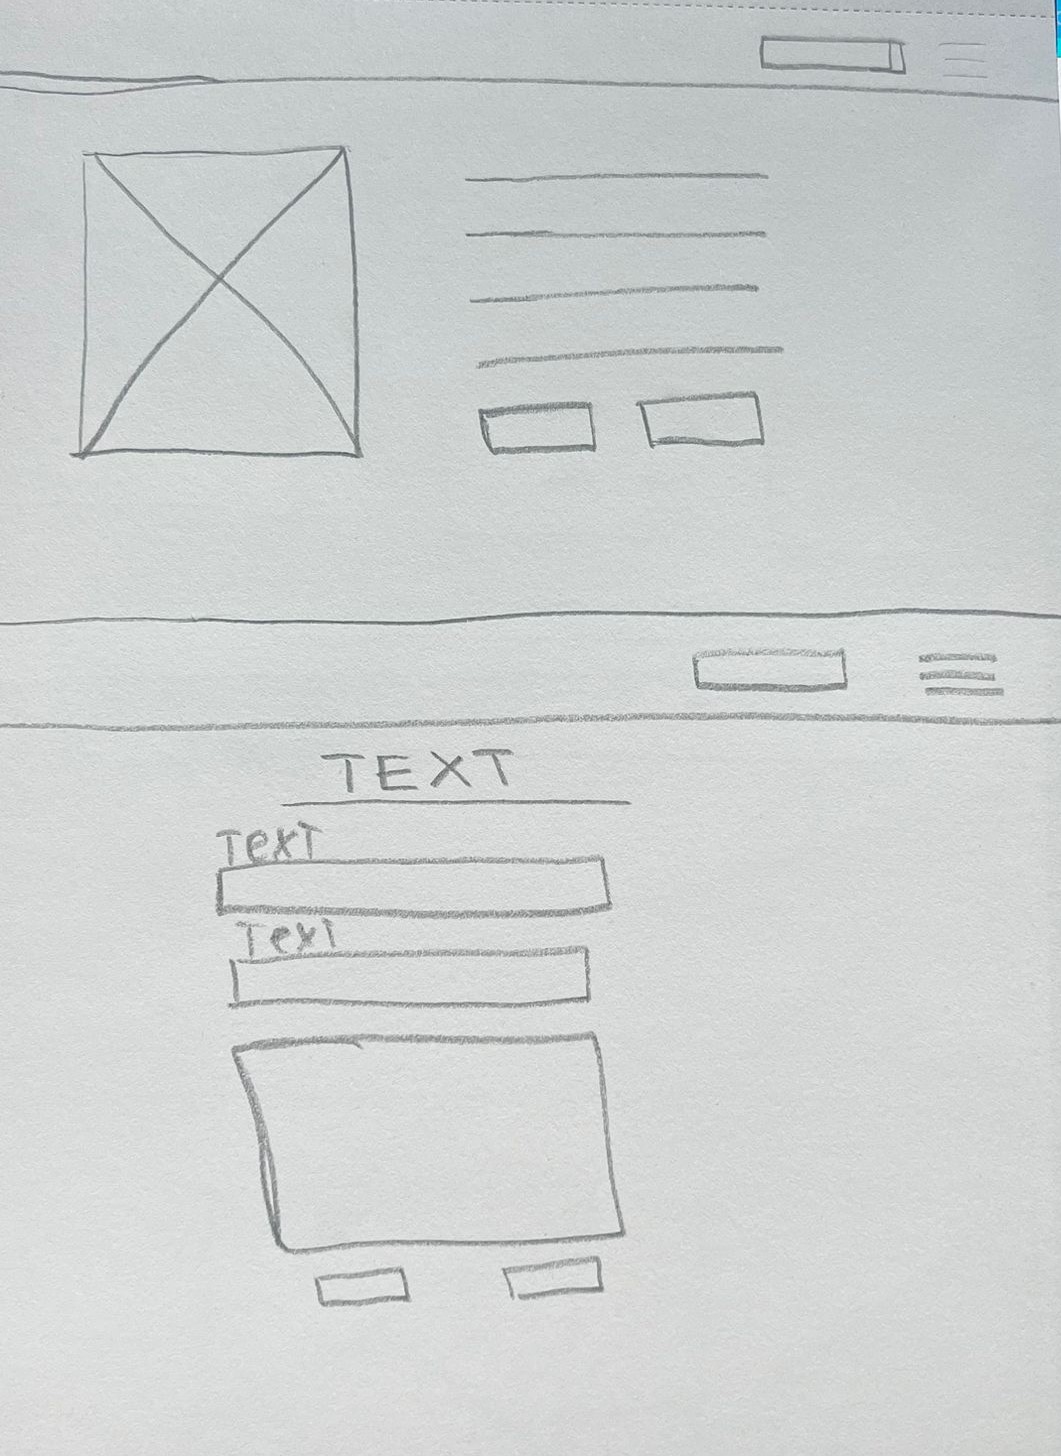 TEXT
TexT
TexT